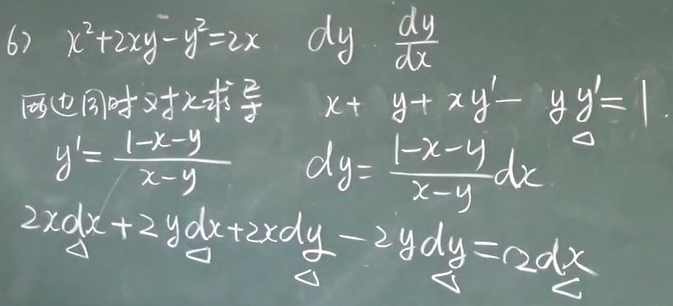 6) x²+2xy-y²=2x dy dy/dx
两边同时对x求导 x+ y+ xy'- yy'=1.
y'= (1-x-y)/(x-y) dy= (1-x-y)/(x-y) dx
2xdx+2ydx+2xdy-2ydy=2dx